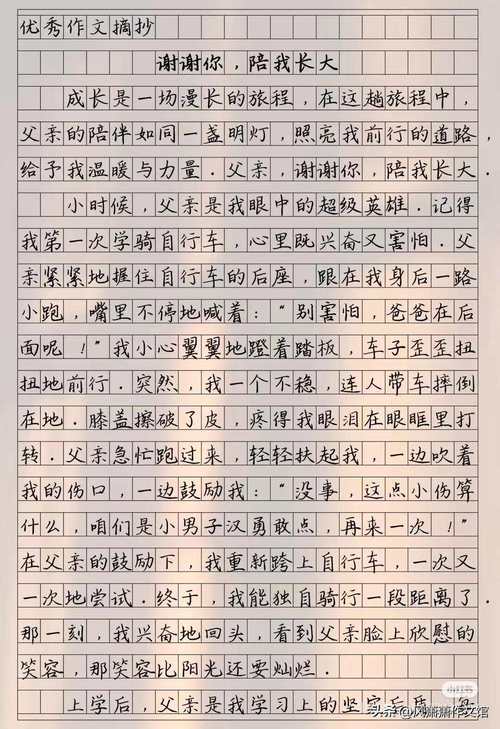 优秀作文摘抄
谢谢你，陪我长大
成长是一场漫长的旅程，在这趟旅程中，
父亲的陪伴如同一盏明灯，照亮我前行的道路．
给予我温暖与力量．父亲，谢谢你，陪我长大．
小时候，父亲是我眼中的超级英雄．记得
我第一次学骑自行车，心里既兴奋又害怕．父
亲紧紧地握住自行车的后座，跟在我身后一路
小跑，嘴里不停地喊着："别害怕，爸爸在后
面呢！"我小心翼翼地蹬着踏板，车子歪歪扭
扭地前行．突然，我一个不稳，连人带车摔倒
在地．膝盖擦破了皮，疼得我眼泪在眼眶里打
转．父亲急忙跑过来，轻轻扶起我，一边吹着
我的伤口，一边鼓励我："没事，这点小伤算
什么，咱们是小男子汉勇敢点，再来一次！"
在父亲的鼓励下，我重新跨上自行车，一次又
一次地尝试．终于，我能独自骑行一段距离了．
那一刻，我兴奋地回头，看到父亲脸上欣慰的
笑容，那笑容比阳光还要灿烂．
小红书
上学后，父亲是我学习上的坚实后盾．
头条@风萧萧作文馆